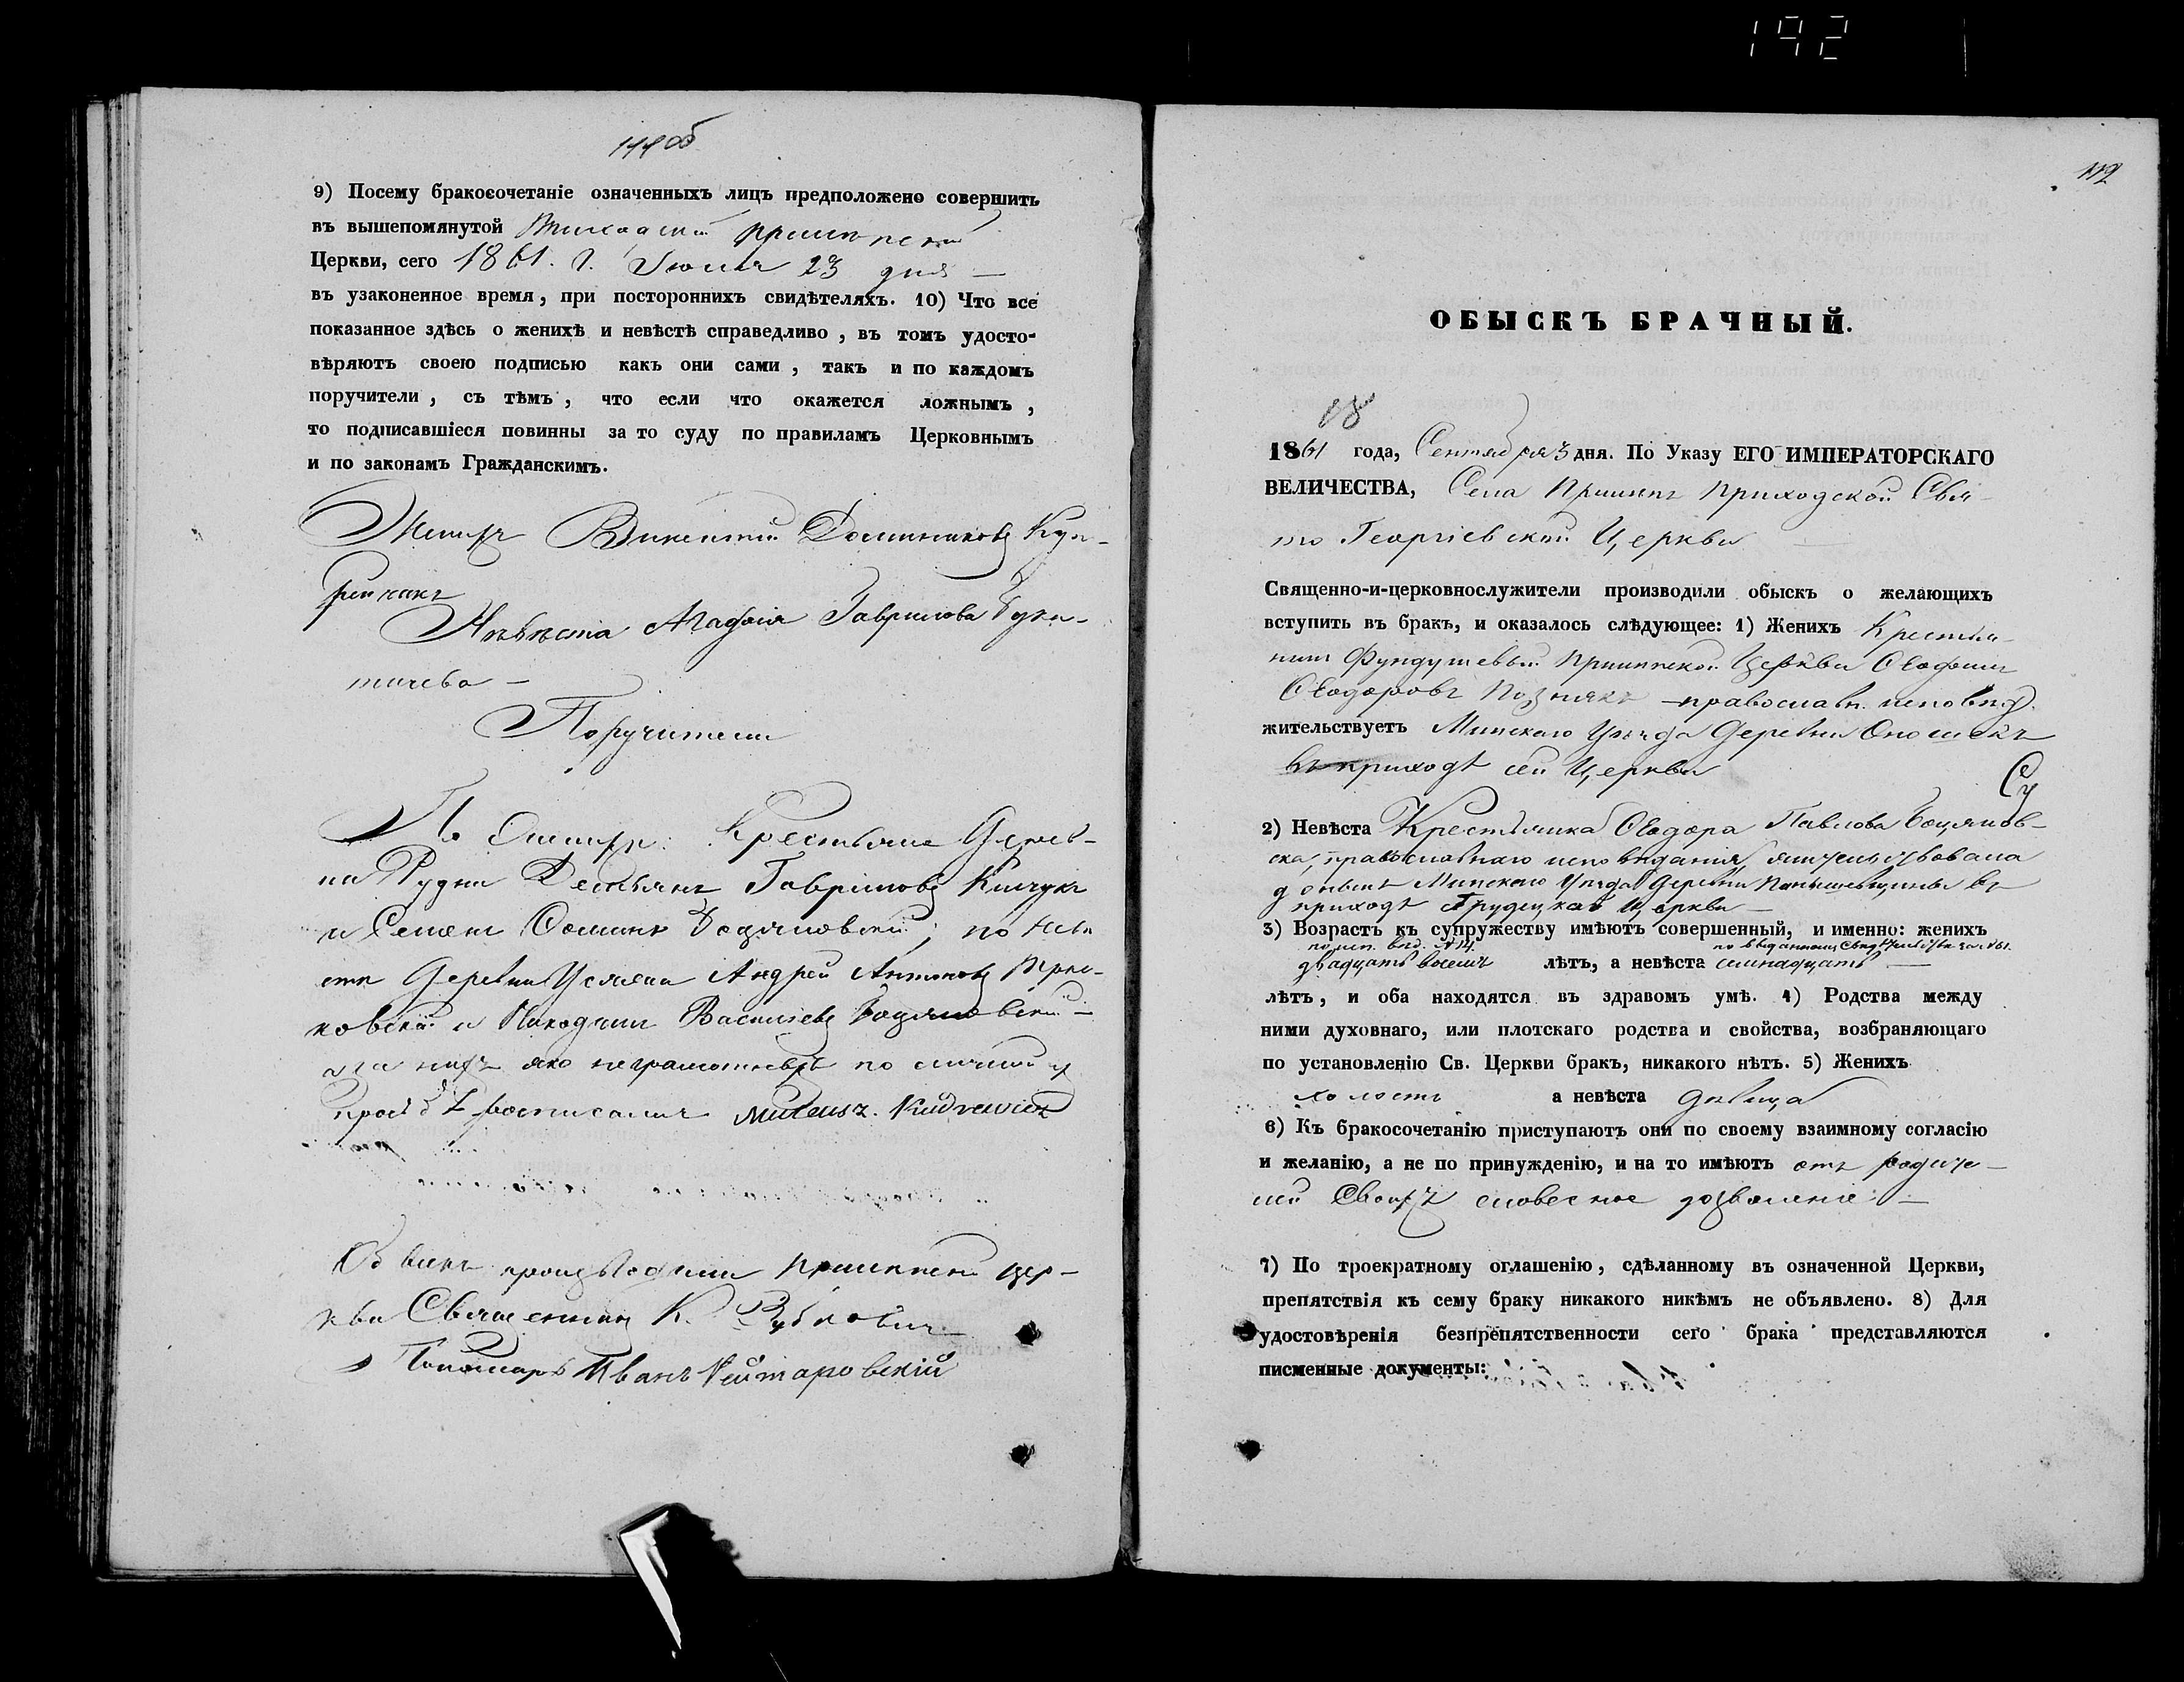 192
111 об
9) Посему бракосочетаніе означенныхъ лицъ предположено совершить
въ вышепомянутой
Церкви, сего 1861. г. Іюля 23 дня —
въ узаконенное время, при постороннихъ свидѣтеляхъ. 10) Что все
показанное здѣсь о женихѣ и невѣстѣ справедливо, въ томъ удосто-
вѣряютъ своею подписью какъ они сами, такъ и по каждомъ
поручители, съ тѣмъ, что если что окажется ложнымъ,
то подписавшіеся повинны за то суду по правиламъ Церковнымъ
и по законамъ Гражданскимъ.
Женихъ Викентій Доминиковъ
Невѣста Агафія Гаврилова
Поручители
По Женихѣ: Крестьяне Дерев-
ни Рудни Гавріиловъ
и Семенъ Боцяновскій; по Невѣ
стѣ Деревни Андрей Антоновъ
ковскій и Никодимъ Васильевъ Боцяновскій —
а за нихъ яко неграмотныхъ по личной ихъ
прозьбѣ росписался Mateusz Kudrewicz
Обыскъ производили церк-
ви Священникъ К.
Пономарь Иванъ
112
ОБЫСКЪ БРАЧНЫЙ.
18
1861 года, Сентября 3 дня. По Указу ЕГО ИМПЕРАТОРСКАГО
ВЕЛИЧЕСТВА, Села Приходской Свя-
то Георгіевской Церкви —
Священно-и-церковнослужители производили обыскъ о желающихъ
вступить въ бракъ, и оказалось слѣдующее: 1) Женихъ Крестья-
нинъ Фундушевый Церкви
Ѳеодоровъ Познякъ — православн. исповѣд.
жительствуетъ Минскаго Уѣзда Деревни
въ приходѣ сей Церкви
2) Невѣста Крестьянка Ѳеодора Павлова Боцянов-
ска, православнаго исповѣданія, жительствовала
донынѣ Минскаго Уѣзда Деревни въ
приходѣ Церкви —
3) Возрастъ къ супружеству имѣютъ совершенный, и именно: женихъ
по исп. вѣд. №14. по выданному Свидѣтельству за №61.
двадцать восемь лѣтъ, а невѣста семнадцать —
лѣтъ, и оба находятся въ здравомъ умѣ. 4) Родства между
ними духовнаго, или плотскаго родства и свойства, возбраняющаго
по установленію Св. Церкви бракъ, никакого нѣтъ. 5) Женихъ
холостъ а невѣста дѣвица
6) Къ бракосочетанію приступаютъ они по своему взаимному согласію
и желанію, а не по принужденію, и на то имѣютъ отъ родите-
лей Своихъ словесное дозволеніе —
7) По троекратному оглашенію, сдѣланному въ означенной Церкви,
препятствія къ сему браку никакого никѣмъ не объявлено. 8) Для
удостовѣренія безпрепятственности сего брака представляются
писменные документы: